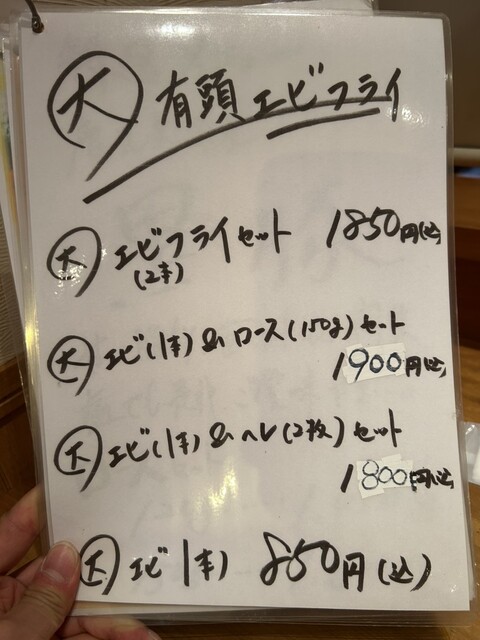 大 有頭エビフライ
大 エビフライセット 1850円(込)
(2本)
大 エビ(1本)&ロース(150g)セット
1900円(込)
大 エビ(1本)&ヘレ(2枚)セット
1800円(込)
大 エビ1本) 850円(込)